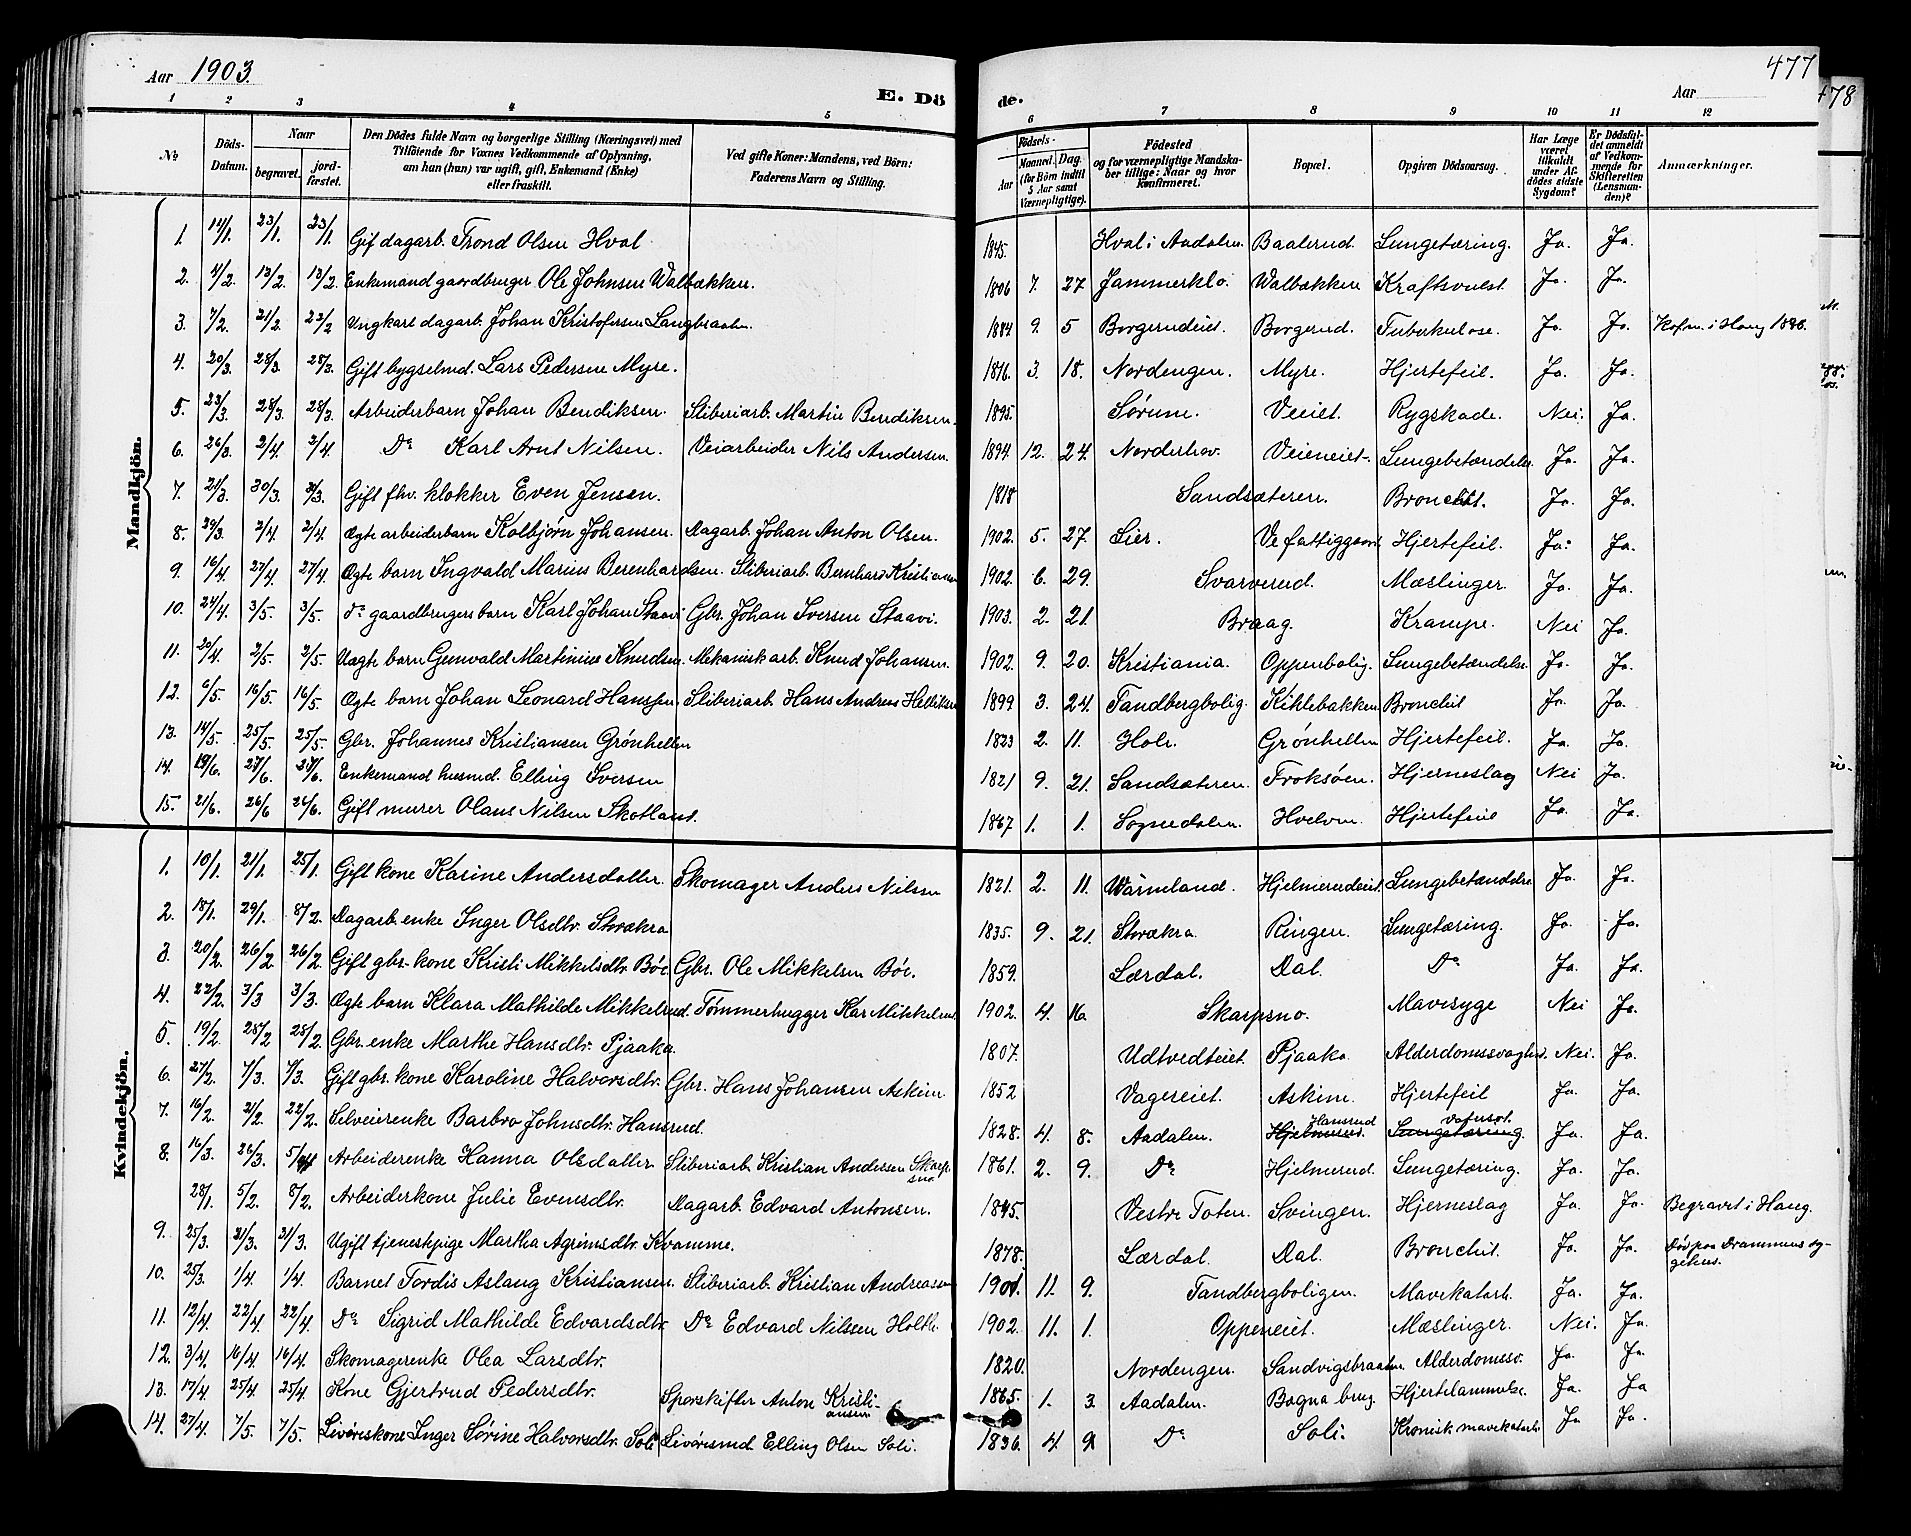 Aar 1903.
E. Dö
de.
Aar
477
478
1 2 3 4 5 6 7 8 9 10 11 12
No
Döds-Datum.
Naar begravet. jord-fæstet.
Den Dödes fulde Navn og borgerlige Stilling (Næringsvei) med Tilföiende for Voxnes Vedkommende af Oplysning, om han (hun) var ugift, gift, Enkemand (Enke) eller fraskilt.
Ved gifte Koner: Mandens, ved Börn: Faderens Navn og Stilling.
Födsels-
Aar
Maaned. Dag. (for Börn indtil 5 Aar samt Værnepligtige).
Födested og for værnepligtige Mandskaber tillige: Naar og hvor konfirmeret.
Bopæl.
Opgiven Dödsaarsag.
Har Læge været tilkaldt under Afdödes sidste Sygdom?
Er Dödsfaldet anmeldt af Vedkommende for Skifteretten (Lensmanden)?
Anmærkninger.
Mandkjön.
1. 14/1. 23/1. 23/1. Gif dagarb. Trond Olsen Hval 1845. Hval i Aadalen. Baalerud. Lungetæring. Ja. Ja.
2. 4/2. 13/2. 13/2. Enkemand gaardbruger Ole Johnsen Walbækken. 1806 7. 27 Jammerklo. Walbækken Kraftsvulst. Ja. Ja.
3. 7/2. 21/2. 22/2 Ungkarl dagarb. Johan Kristofersen Langbraaten. 1884 9. 5 Borgerudeiet. Borgerud. Tuberkulose. Ja. Ja. Kofm. i Haug
4. 20/3. 28/3. 28/3. Gift bygselmd. Lars Pedersen Myre. 1816. 3. 18. Nordengen. Myre. Hjertefeil. Ja. Ja.
5. 23/3 28/3. 28/3. Arbeiderbarn Johan Bendiksen. Sliberiarb. Martin Bendiksen. 1895. Sørum. Veiet. Rygskade. Nei. Ja.
6. 26/3. 2/4. 2/4. Do Karl Arnt Nilsen. Veiarbeider Nils Andersen. 1894. 12. 24. Norderhov. Veieneiet. Lungebetændelse. Ja. Ja.
7. 21/3. 30/3. Gift fhv. klokker Even Jensen. 1818 Sandsæteren. Bronchit. Ja. Ja.
8. 29/3. 2/4. 2/4. Ægte arbeiderbarn Kolbjørn Johansen. Dagarb. Johan Anton Olsen. 1902. 5. 27. Lier. Ve fattiggaard. Hjertefeil. Ja. Ja.
9. 16/4. 27/4. 27/4. Ægte barn Ingvald Marius Berenhardsen. Sliberiarb. Bernhard Kristiansen 1902. 6. 29. Svarverud. Mæslinger. Ja. Ja.
10. 24/4. 3/5. 3/5. do gaardbrugers barn Karl Johan Staavi Gbr. Johan Iversen Staavi. 1903. 2. 21. Braag. Krampe. Nei Ja.
11. 20/4. 2/5. 2/5. Uægte barn Gunvald Martinius Knudsen. Mekanisk arb. Knud Johansen. 1902. 9. 20. Kristiania. Oppenbolig. Lungebetændelse Ja. Ja.
12. 6/5. 16/5. 16/5. Ægte barn Johan Leonard Hanssen Sliberiarb. Hans Andreas Helliksen 1899 3. 24. Tandbergbolig. Kihlebakken. Bronchit Ja. Ja.
13. 14/5. 25/5. 25/5. Gbr. Johannes Kristiansen Grønhellen 1823 2. 11. Hole. Grønhellen Hjertefeil. Ja. Ja.
14. 19/6. 27/6. 27/6. Enkemand husmd. Elling Iversen 1821 9. 21. Sandsæteren. Froksøen. Hjerneslag Nei Ja.
15. 21/6. 26/6 26/6. Gift murer Olaus Nilsen Skotland. 1867 1. 1. Sognedalen. Hvelven. Hjertefeil Ja. Ja.
Kvindekjön.
1. 10/1. 21/1. 25/1. Gift kone Karine Andersdatter. Skomager Anders Nilsen 1821. 2. 11. Wärmland. Hjelmerudeiet. Lungebetændelse Ja. Ja.
2. 18/1. 29/1. 8/2. Dagarb. enke Inger Olsdtr. Stvrækra 1835. 9. 21. Ringen. Lungetæring. Ja. Ja.
3. 20/2. 26/2. 26/2. Gift gbr. kone Kristi Mikkelsdtr. Bøe Gbr. Ole Mikkelsen Bøe. 1859. Lærdal. Dal. Do Ja. Ja.
4. 22/2. 3/3 3/3. Ægte barn Klara Mathilde Mikkelrud. Tømmerhugger Kar Mikkelrud 1902. 4. 16. Skarpsno. Mavesyge Nei Ja.
5. 19/2. 28/2 28/2. Gbr. enke Marthe Hansdtr. Pjaaka. 1807. Udtvedteiet Pjaaka Alderdomssvaghed. Nei. Ja.
6. 27/2. 7/3. 7/3. Gift gbr. kone Karoline Halvorsdtr. Gbr. Hans Johansen Askim 1852 Vagereiet. Askim. Hjertefeil Ja. Ja.
7. 16/2. 2/2. 22/2. Selveierenke Barbro Johnsdtr. Hansrud. 1828. 4. 8. Aadalen. Hjelmerud. Hansrud Lungetæring. Vatersot. Ja. Ja.
8. 16/3. 26/3. 5/4 Arbeiderenke Hanna Olsdatter Sliberiarb. Kristian Andersen Skarpsno 1861. 2. 9. Do Hjelmerud. Lungetæring. Ja. Ja.
28/1. 5/2. 8/2. Arbeiderkone Julie Evensdtr. Dagarb. Edvard Antonsen. 1845. Vestre Toten. Svingen. Hjerneslag Ja. Ja. Begravet i Haug.
9. 25/3. 31/3. 31/3. Ugift tjenestpige Martha Agrimsdtr. Kvamme. 1878. Lærdal. Dal. Bronchit. Ja. Ja. Død paa Drammens sygehus.
10. 25/3. 1/4. 1/4. Barnet Tordis Aslaug Kristiansen. Sliberiarb. Kristian Andreassen 1901. 11. 9. Tandbergboligen. Mavekatarh. Ja. Ja.
11. 12/4. 22/4. 22/4. Do Sigrid Mathilde Edvardsdtr. Do Edvard Nilsen Holth. 1902. 11. 1. Oppeneiet. Mæslinger. Nei. Ja.
12. 3/4. 16/4. 16/4. Skomagerenke Olea Larsdtr. 1820. Nordengen. Sandvigsbraaten. Alderdomssv. Ja. Ja.
13. 17/4. 25/4. 25/4. Kone Gjertrud Pedersdtr. Sporskifter Anton Kristiansen 1865. 1. 3. Aadalen. Bægna brug. Hjertelammelse. Ja. Ja
14. 27/4. 7/5. 7/5. Livøreskone Inger Sørine Halvorsdtr. Soli Livøresmd Elling Olsen Soli. 1836. 4. 9 Do Soli. Kronisk mavekatarh Ja Ja.